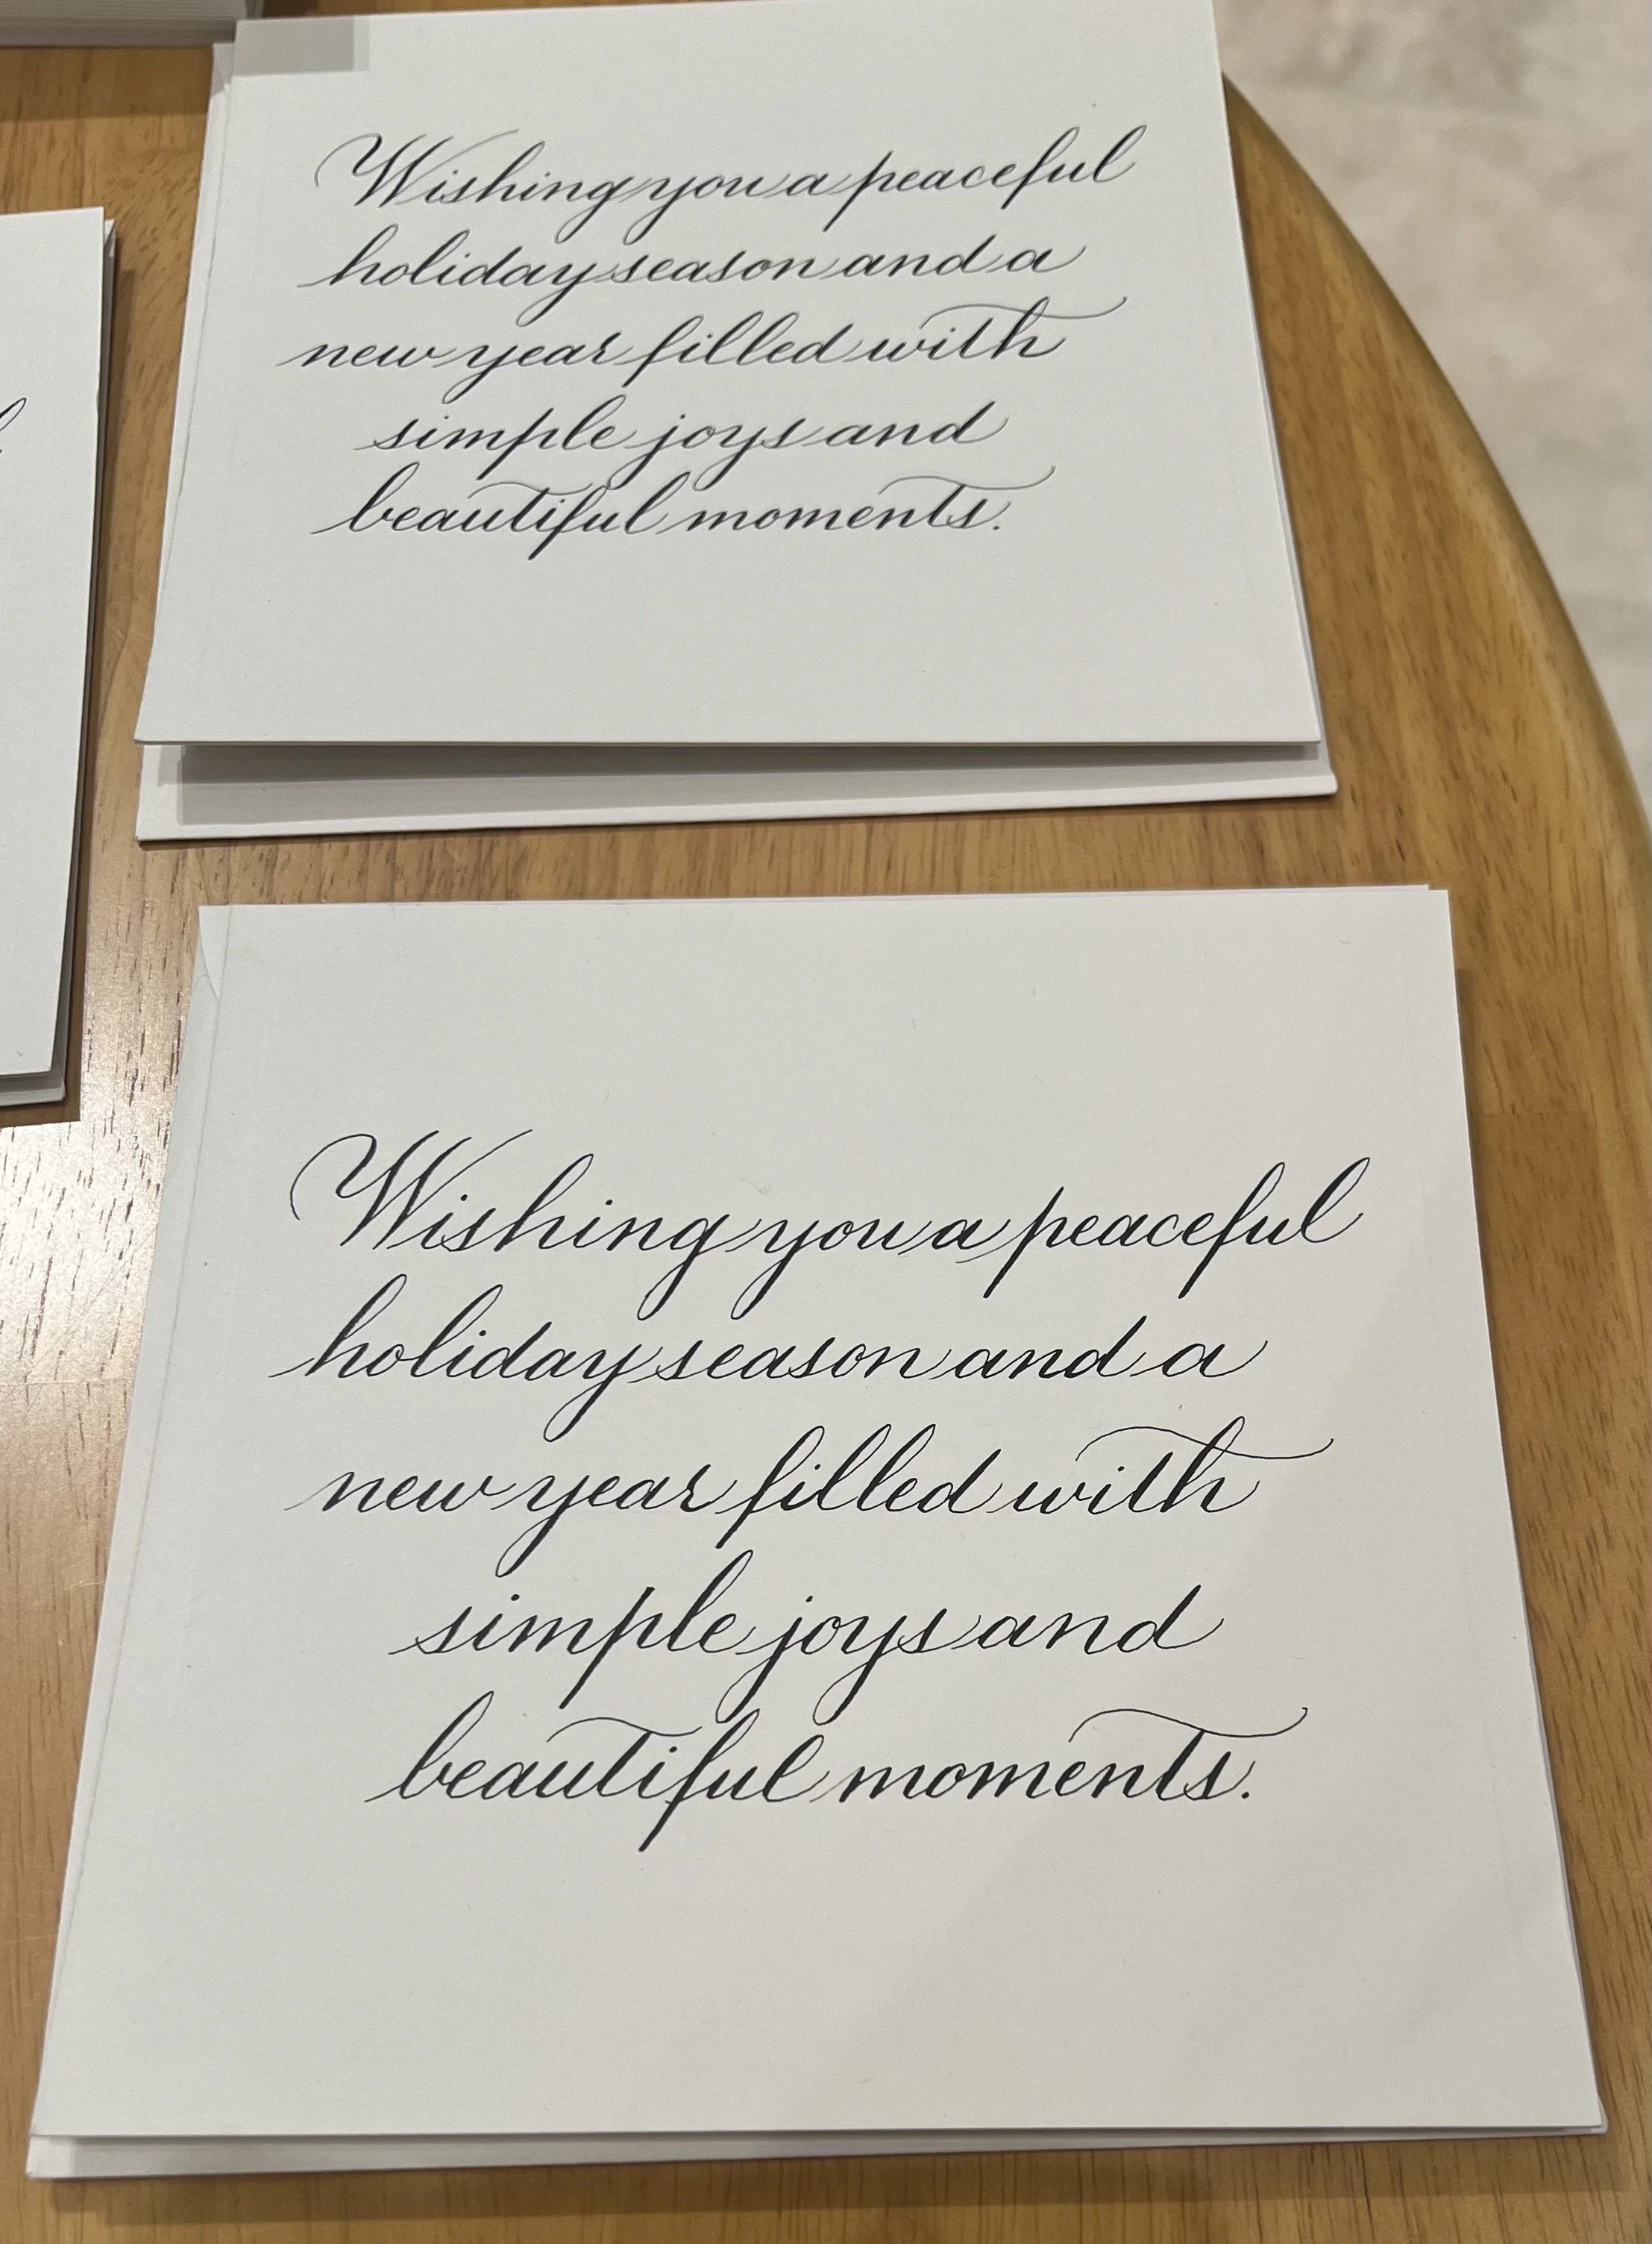 Wishing you a peaceful
holiday season and a
new year filled with
simple joys and
beautiful moments.
Wishing you a peaceful
holiday season and a
new year filled with
simple joys and
beautiful moments.